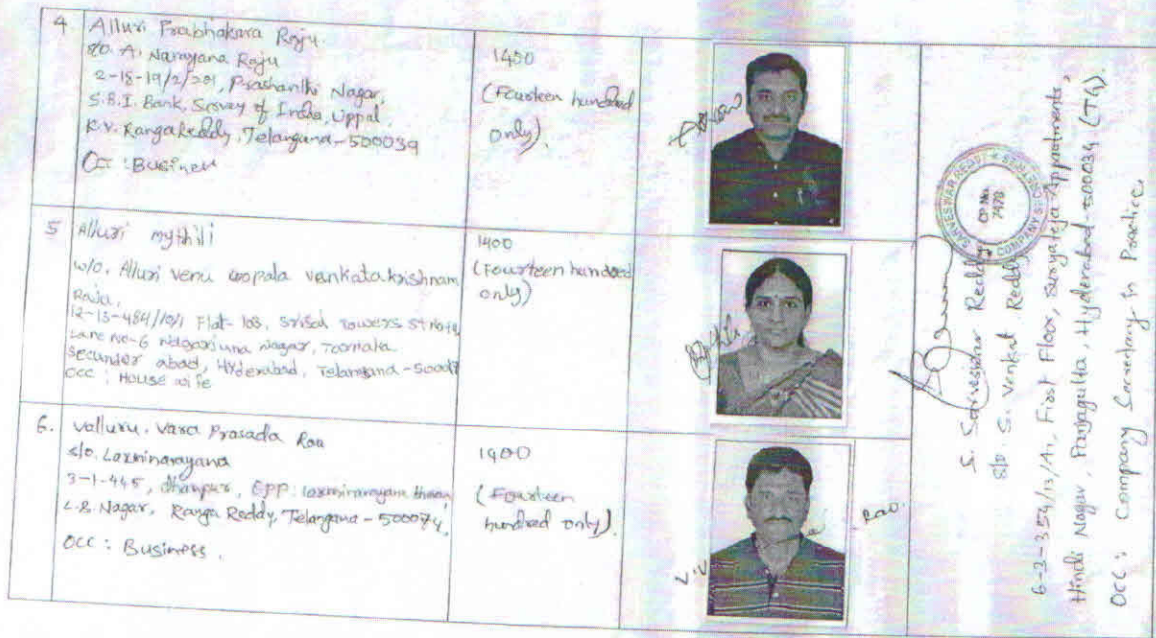 4 Alluri Prabhakara Raju
S/o. A. Narayana Raju
2-18-19/2/201, Prashanthi Nagar,
S.B.I. Bank, Survey of India, Uppal,
K.V. Rangareddy, Telangana-500039
Occ: Business
1400
(Fourteen hundred
only).
5 Alluri mythili
w/o. Alluri venu Gopala venkata krishnam
Raju,
12-13-484/10/1 Flat-103, Towers st no 14
Lane no-6 Nagarjuna nagar, Tarnaka
Secunder abad, Hyderabad, Telangana-500017
occ: House wife
1400
(Fourteen hundred
only)
6. Valluru. Vara Prasada Rao
s/o. Laxminarayana
3-1-445, OPP: laxminarayana
L.B. Nagar, Ranga Reddy, Telangana-500074,
occ: Business.
1400
(Fourteen
hundred only).
V.V
Rao
SARVESWAR REDDY
COMPANY
CP No.
7478
S. Sarveswar Reddy
S/o S. Venkat Reddy
6-3-354/13/A1, First Floor, Suryateja Appartments,
Hindi Nagar, Panjagutta, Hyderabad-500034 (TG).
Occ: Company Secretary in Practice.